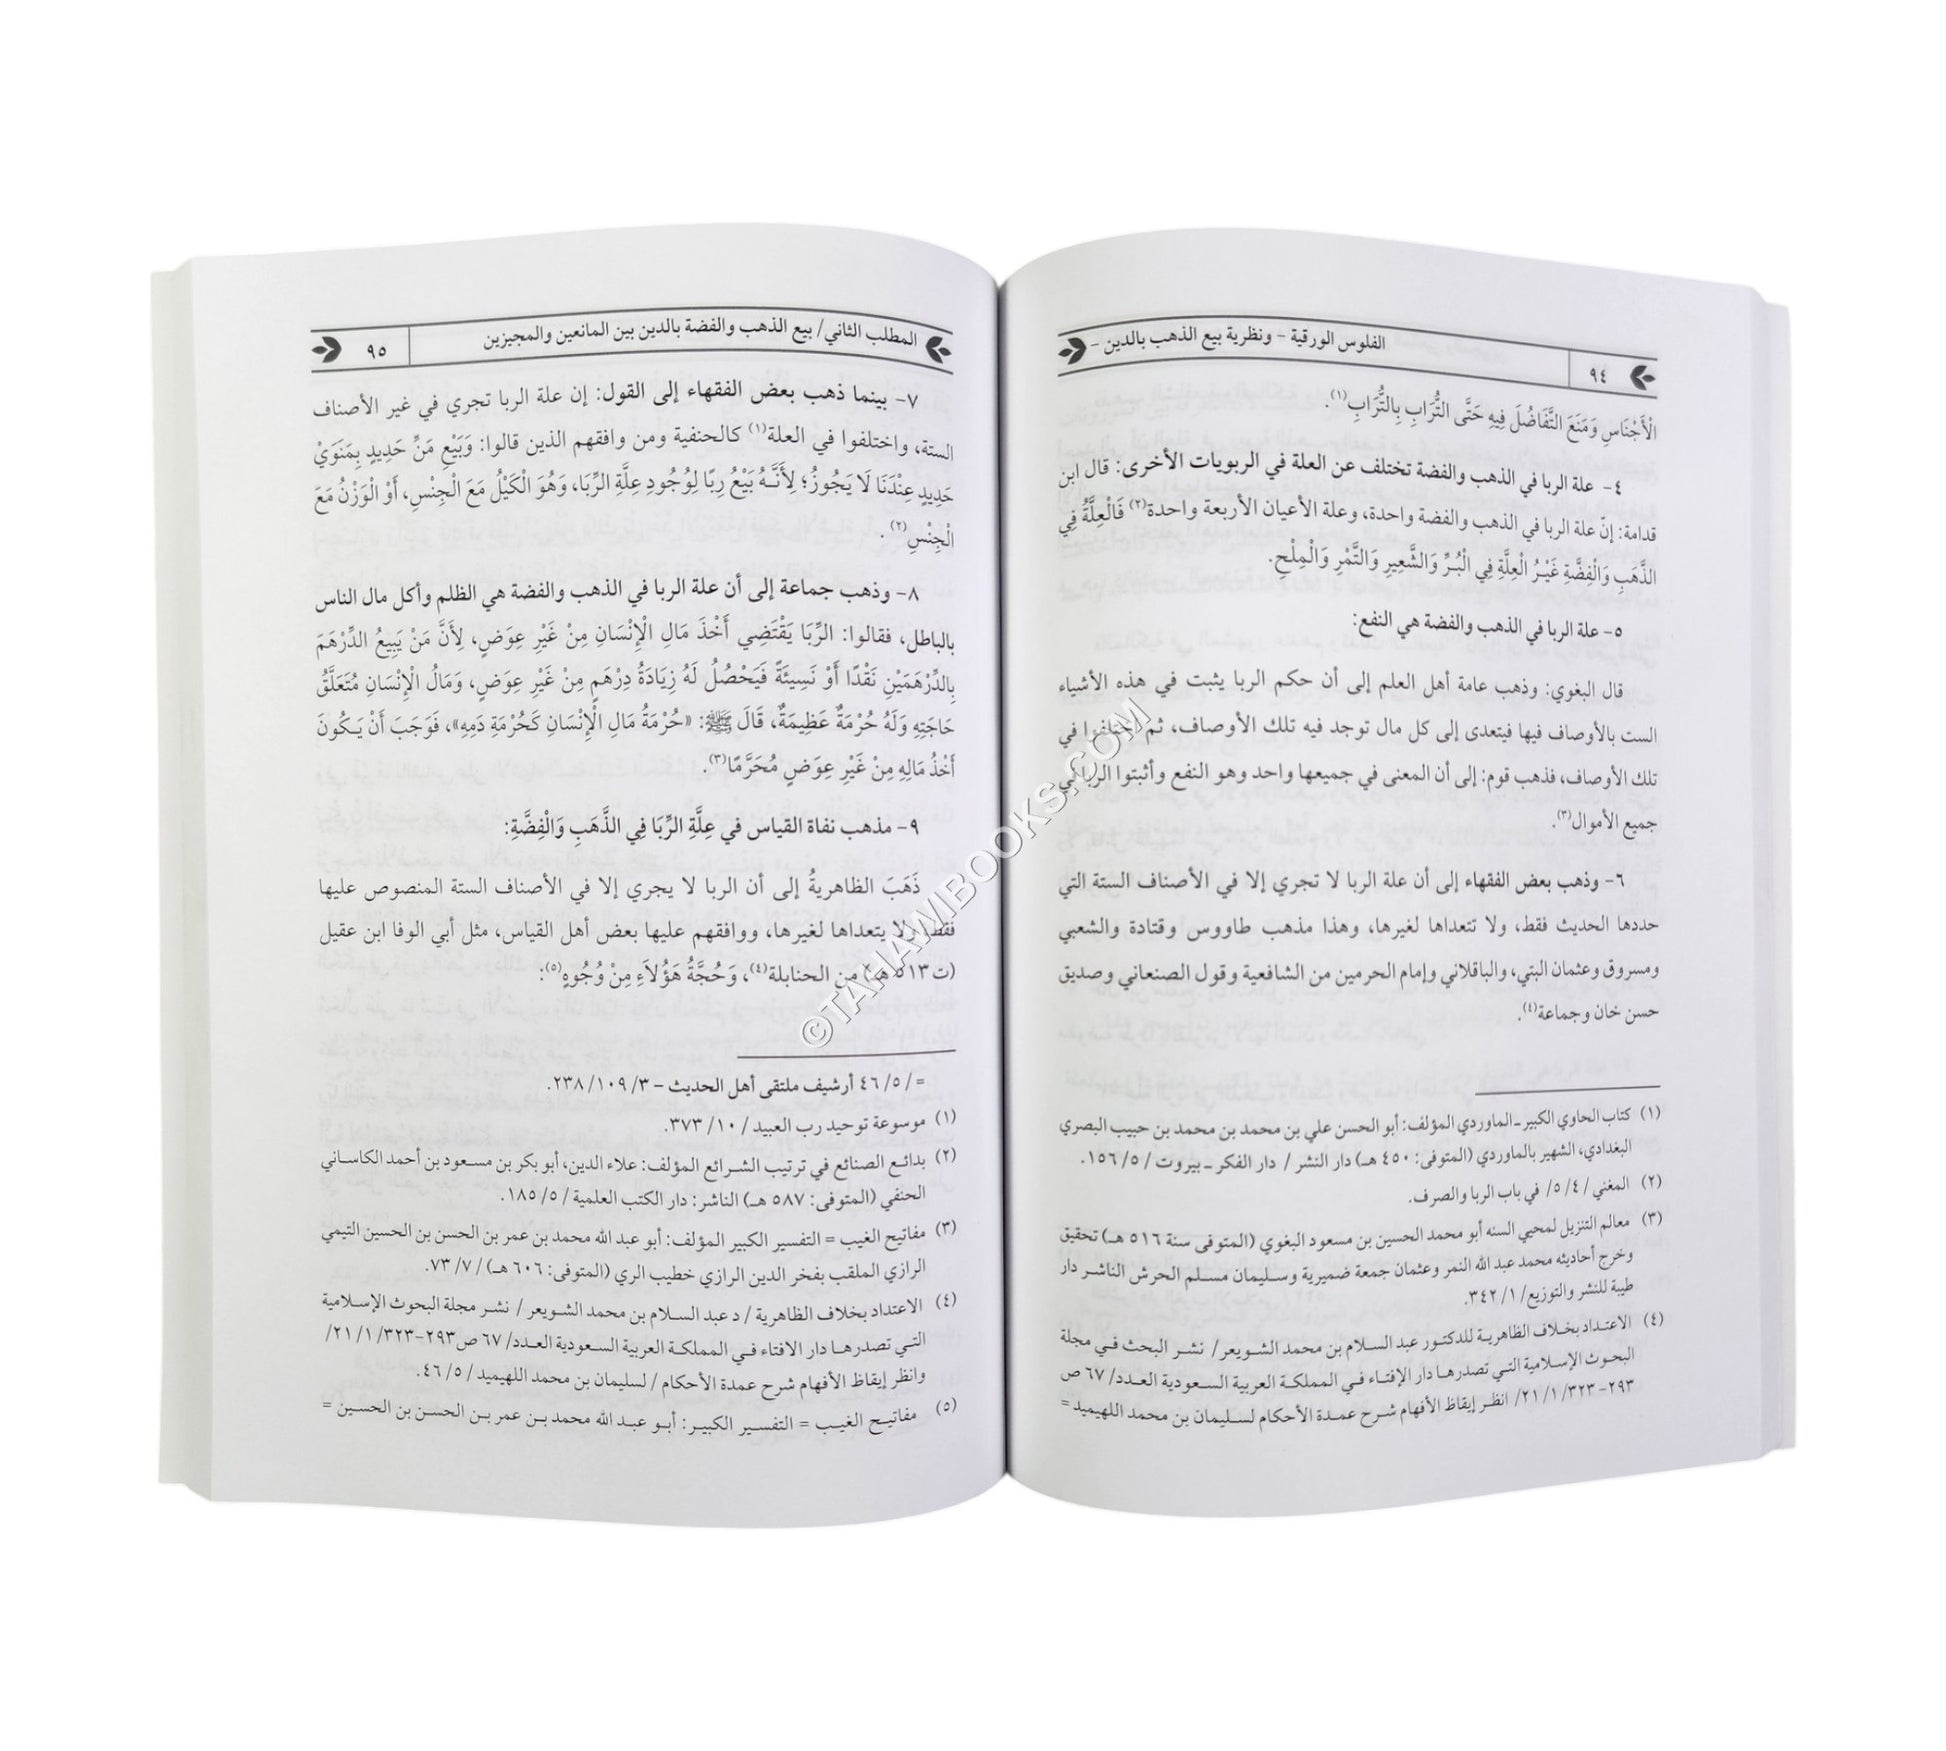 ٩٤
الفلوس الورقية - ونظرية بيع الذهب بالدين -
الْأَجْنَاسِ وَمَنَعَ التَّفَاضُلَ فِيهِ حَتَّى التُّرَابِ بِالتُّرَابِ(١).
٤- علة الربا في الذهب والفضة تختلف عن العلة في الربويات الأخرى: قال ابن
قدامة: إنّ علة الربا في الذهب والفضة واحدة، وعلة الأعيان الأربعة واحدة(٢) فَالْعِلَّةُ فِي
الذَّهَبِ وَالْفِضَّةِ غَيْرُ الْعِلَّةِ فِي الْبُرِّ وَالشَّعِيرِ وَالتَّمْرِ وَالْمِلْحِ.
٥- علة الربا في الذهب والفضة هي النفع:
قال البغوي: وذهب عامة أهل العلم إلى أن حكم الربا يثبت في هذه الأشياء
الست بالأوصاف فيها فيتعدى إلى كل مال توجد فيه تلك الأوصاف، ثم اختلفوا في
تلك الأوصاف، فذهب قوم: إلى أن المعنى في جميعها واحد وهو النفع وأثبتوا الربا في
جميع الأموال(٣).
٦- وذهب بعض الفقهاء إلى أن علة الربا لا تجري إلا في الأصناف الستة التي
حددها الحديث فقط، ولا تتعداها لغيرها، وهذا مذهب طاووس وقتادة والشعبي
ومسروق وعثمان البتي، والباقلاني وإمام الحرمين من الشافعية وقول الصنعاني وصديق
حسن خان وجماعة(٤).
(١) كتاب الحاوي الكبير ـ الماوردي المؤلف: أبو الحسن علي بن محمد بن محمد بن حبيب البصري
البغدادي، الشهير بالماوردي (المتوفى: ٤٥٠ هـ) دار النشر / دار الفكر ـ بيروت / ٥/ ١٥٦.
(٢) المغني / ٤/ ٥/ في باب الربا والصرف.
(٣) معالم التنزيل لمحيي السنه أبو محمد الحسين بن مسعود البغوي (المتوفى سنة ٥١٦ هـ) تحقيق
وخرج أحاديثه محمد عبد الله النمر وعثمان جمعة ضميرية وسليمان مسلم الحرش الناشر دار
طيبة للنشر والتوزيع/ ١/ ٣٤٢.
(٤) الاعتداد بخلاف الظاهرية للدكتور عبد السلام بن محمد الشويعر/ نشر البحث في مجلة
البحوث الإسلامية التي تصدرها دار الإفتاء في المملكة العربية السعودية العدد/ ٦٧ ص
٢٩٣-٣٢٣/ ١/ ٢١/ انظر إيقاظ الأفهام شرح عمدة الأحكام لسليمان بن محمد اللهيميد =
المطلب الثاني/ بيع الذهب والفضة بالدين بين المانعين والمجيزين
٩٥
٧- بينما ذهب بعض الفقهاء إلى القول: إن علة الربا تجري في غير الأصناف
الستة، واختلفوا في العلة(١) كالحنفية ومن وافقهم الذين قالوا: وَبَيْعِ مَنِّ حَدِيدٍ بِمَنَوَيْ
حَدِيدٍ عِنْدَنَا لَا يَجُوزُ؛ لِأَنَّهُ بَيْعُ رِبًا لِوُجُودِ عِلَّةِ الرِّبَا، وَهُوَ الْكَيْلُ مَعَ الْجِنْسِ، أَوْ الْوَزْنُ مَعَ
الْجِنْسِ(٢).
٨- وذهب جماعة إلى أن علة الربا في الذهب والفضة هي الظلم وأكل مال الناس
بالباطل، فقالوا: الرِّبَا يَقْتَضِي أَخْذَ مَالِ الْإِنْسَانِ مِنْ غَيْرِ عِوَضٍ، لِأَنَّ مَنْ يَبِيعُ الدِّرْهَمَ
بِالدِّرْهَمَيْنِ نَقْدًا أَوْ نَسِيئَةً فَيَحْصُلُ لَهُ زِيَادَةُ دِرْهَمٍ مِنْ غَيْرِ عِوَضٍ، وَمَالُ الْإِنْسَانِ مُتَعَلَّقُ
حَاجَتِهِ وَلَهُ حُرْمَةٌ عَظِيمَةٌ، قَالَ ﷺ: «حُرْمَةُ مَالِ الْإِنْسَانِ كَحُرْمَةِ دَمِهِ»، فَوَجَبَ أَنْ يَكُونَ
أَخْذُ مَالِهِ مِنْ غَيْرِ عِوَضٍ مُحَرَّمًا(٣).
٩- مذهب نفاة القياس في عِلَّةِ الرِّبَا فِي الذَّهَبِ وَالْفِضَّةِ:
ذَهَبَ الظاهريةُ إلى أن الربا لا يجري إلا في الأصناف الستة المنصوص عليها
فقط، ولا يتعداها لغيرها، ووافقهم عليها بعض أهل القياس، مثل أبي الوفا ابن عقيل
(ت ٥١٣ هـ) من الحنابلة(٤)، وَحُجَّةُ هَؤُلَاءِ مِنْ وُجُوهٍ(٥):
= / ٥/ ٤٦ أرشيف ملتقى أهل الحديث - ٣/ ١٠٩/ ٢٣٨.
(١) موسوعة توحيد رب العبيد / ١٠/ ٣٧٣.
(٢) بدائع الصنائع في ترتيب الشرائع المؤلف: علاء الدين، أبو بكر بن مسعود بن أحمد الكاساني
الحنفي (المتوفى: ٥٨٧ هـ) الناشر: دار الكتب العلمية / ٥/ ١٨٥.
(٣) مفاتيح الغيب = التفسير الكبير المؤلف: أبو عبد الله محمد بن عمر بن الحسن بن الحسين التيمي
الرازي الملقب بفخر الدين الرازي خطيب الري (المتوفى: ٦٠٦ هـ) / ٧/ ٧٣.
(٤) الاعتداد بخلاف الظاهرية / د عبد السلام بن محمد الشويعر / نشر مجلة البحوث الإسلامية
التي تصدرها دار الافتاء في المملكة العربية السعودية العدد/ ٦٧ ص٢٩٣-٣٢٣/ ١/ ٢١/
وانظر إيقاظ الأفهام شرح عمدة الأحكام / لسليمان بن محمد اللهيميد / ٥/ ٤٦.
(٥) مفاتيح الغيب = التفسير الكبير: أبو عبد الله محمد بن عمر بن الحسن بن الحسين =
©TAHAWIBOOKS.COM